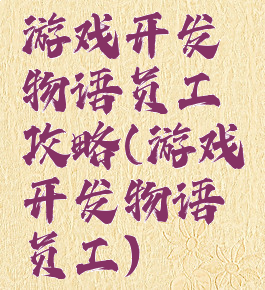 游戏开发
物语员工
攻略(游戏
开发物语
员工)